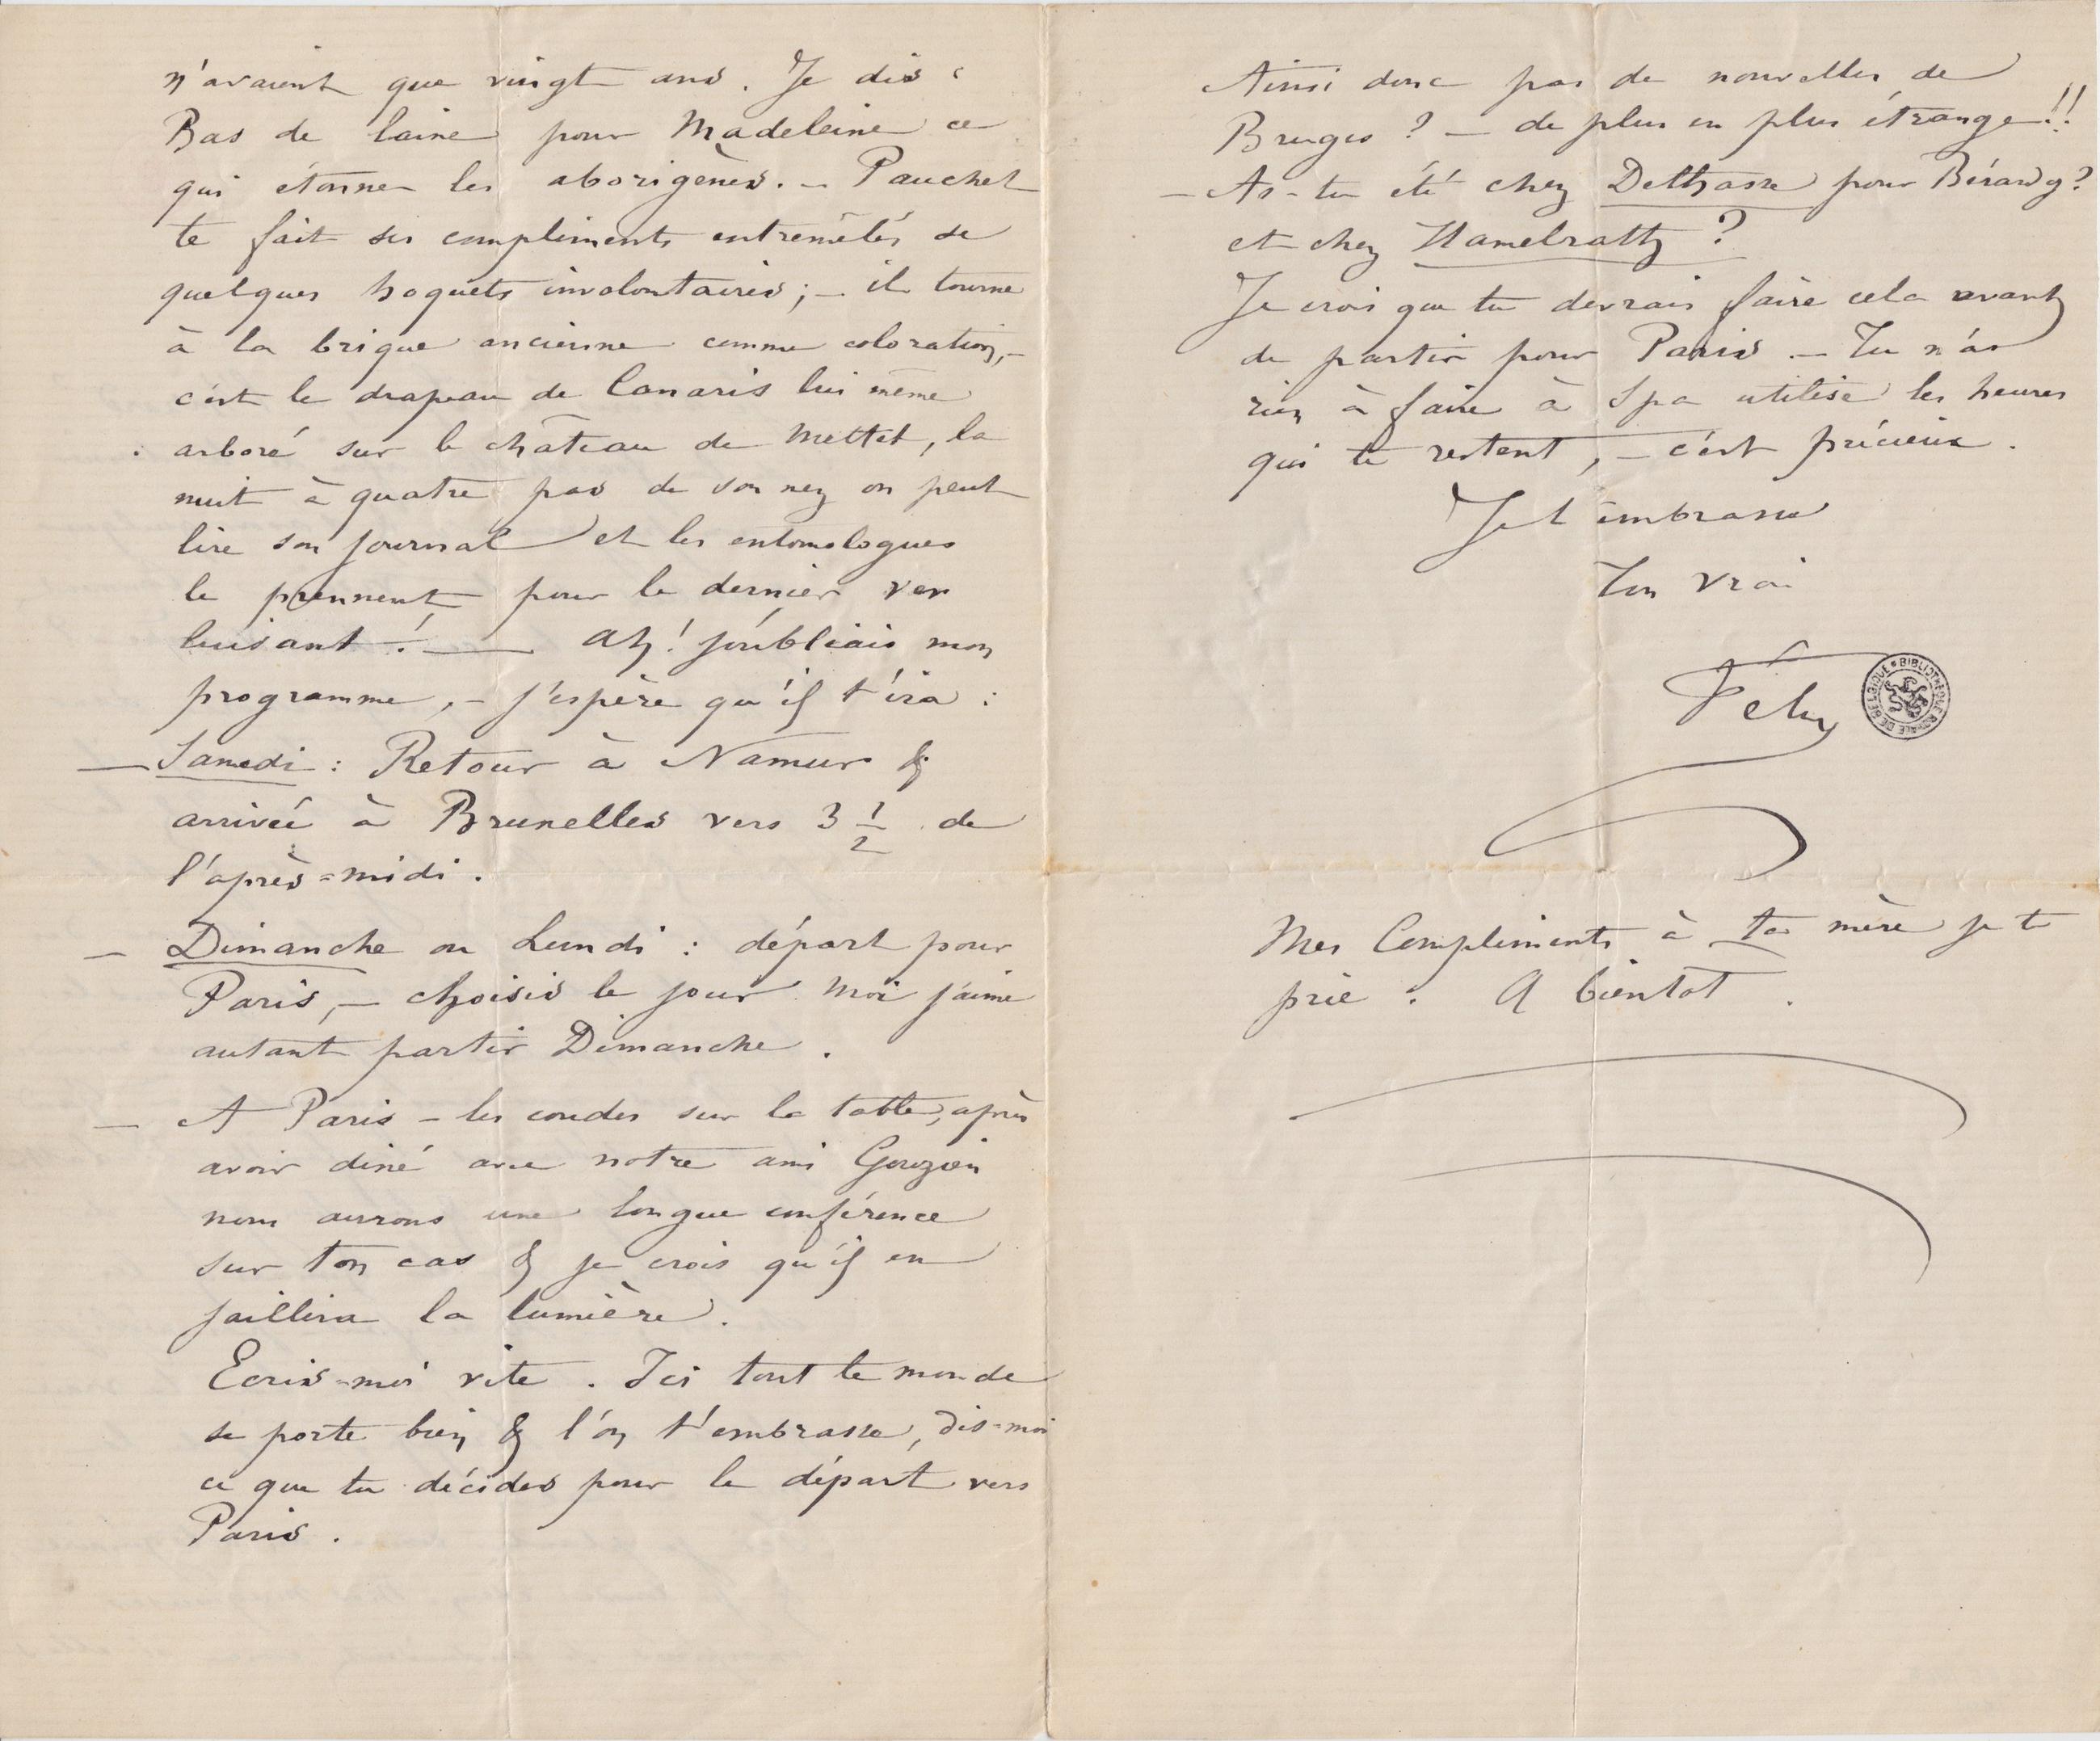 n'avaient que vingt ans. Je dis :
Bas de laine pour Madeleine ce
qui étonne les aborigènes. – Pauchet
te fait ses compliments entremêlés de
quelques hoquets involontaires; – il tourne
à la brique ancienne comme coloration, –
c'est le drapeau de Canaris lui même
arboré sur le château de Mettet, la
nuit à quatre pas de son nez on peut
lire son journal et les entomologues
le prennent pour le dernier ver
luisant ! — Ah ! j'oubliais mon
programme, – j'espère qu'il t'ira :
— Samedi : Retour à Namur &
arrivée à Bruxelles vers 3 1/2 de
l'après=midi.
— Dimanche ou Lundi : départ pour
Paris, – choisis le jour moi j'aime
autant partir Dimanche.
— A Paris – les coudes sur la table, après
avoir diné avec notre ami Gouzien
nous aurons une longue conférence
sur ton cas & je crois qu'il en
jaillira la lumière.
Ecris=moi vite. Ici tout le monde
se porte bien & l'on t'embrasse, dis=moi
ce que tu décides pour le départ vers
Paris.
Ainsi donc pas de nouvelles de
Bruges ? – de plus en plus étrange !!
– As-tu été chez Delhasse pour Bérardy ?
et chez Hamelrath ?
Je crois que tu devrais faire cela avant
de partir pour Paris. – Tu n'as
rien à faire à Spa utilise les heures
qui te restent, – c'est précieux.
Je t'embrasse
Ton vrai
Fély
BIBLIOTHÈQUE ROYALE DE BELGIQUE
Mes Compliments à ta mère je te
prie. A bientot.